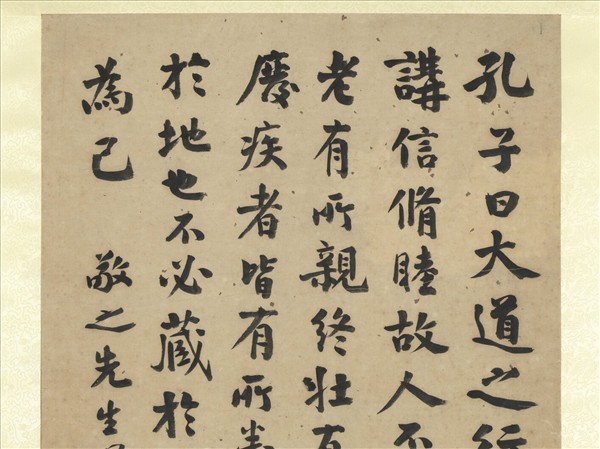 孔子曰大道之行
講信脩睦故人不
老有所親終壯有
廢疾者皆有所養
於地也不必藏於
為己 敬之先生